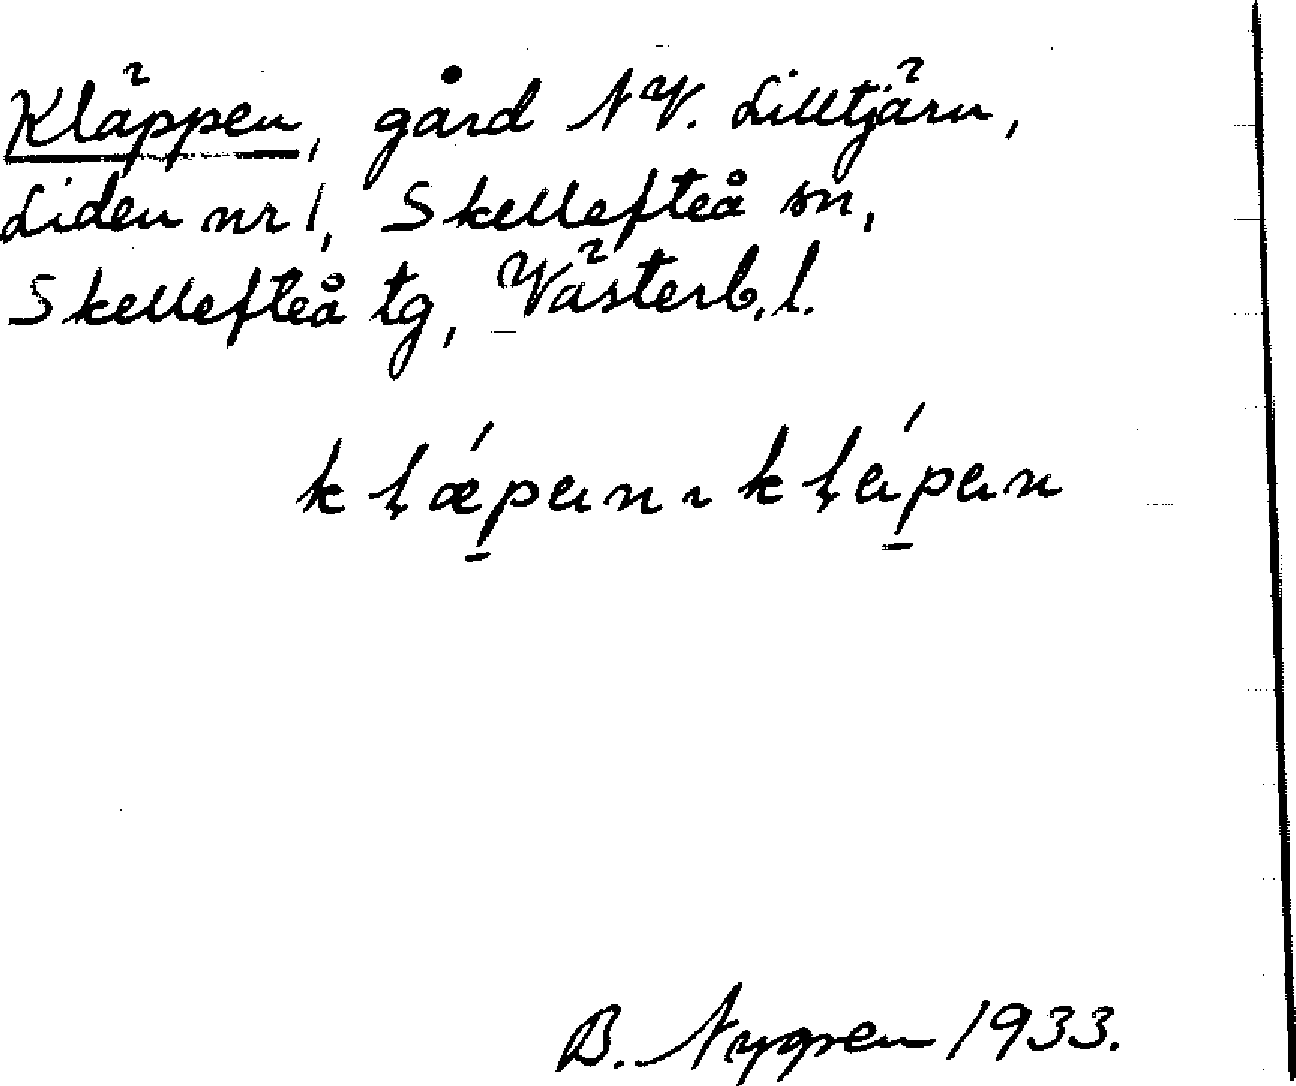 Kläppen, gård NV. Lilltjärn,
Liden nr 1, Skellefteå sn,
Skellefteå tg, Västerb. l.
kḷæ´p̱ɐn ~ kḷɐ´p̱ɐn
B. Nygren 1933.